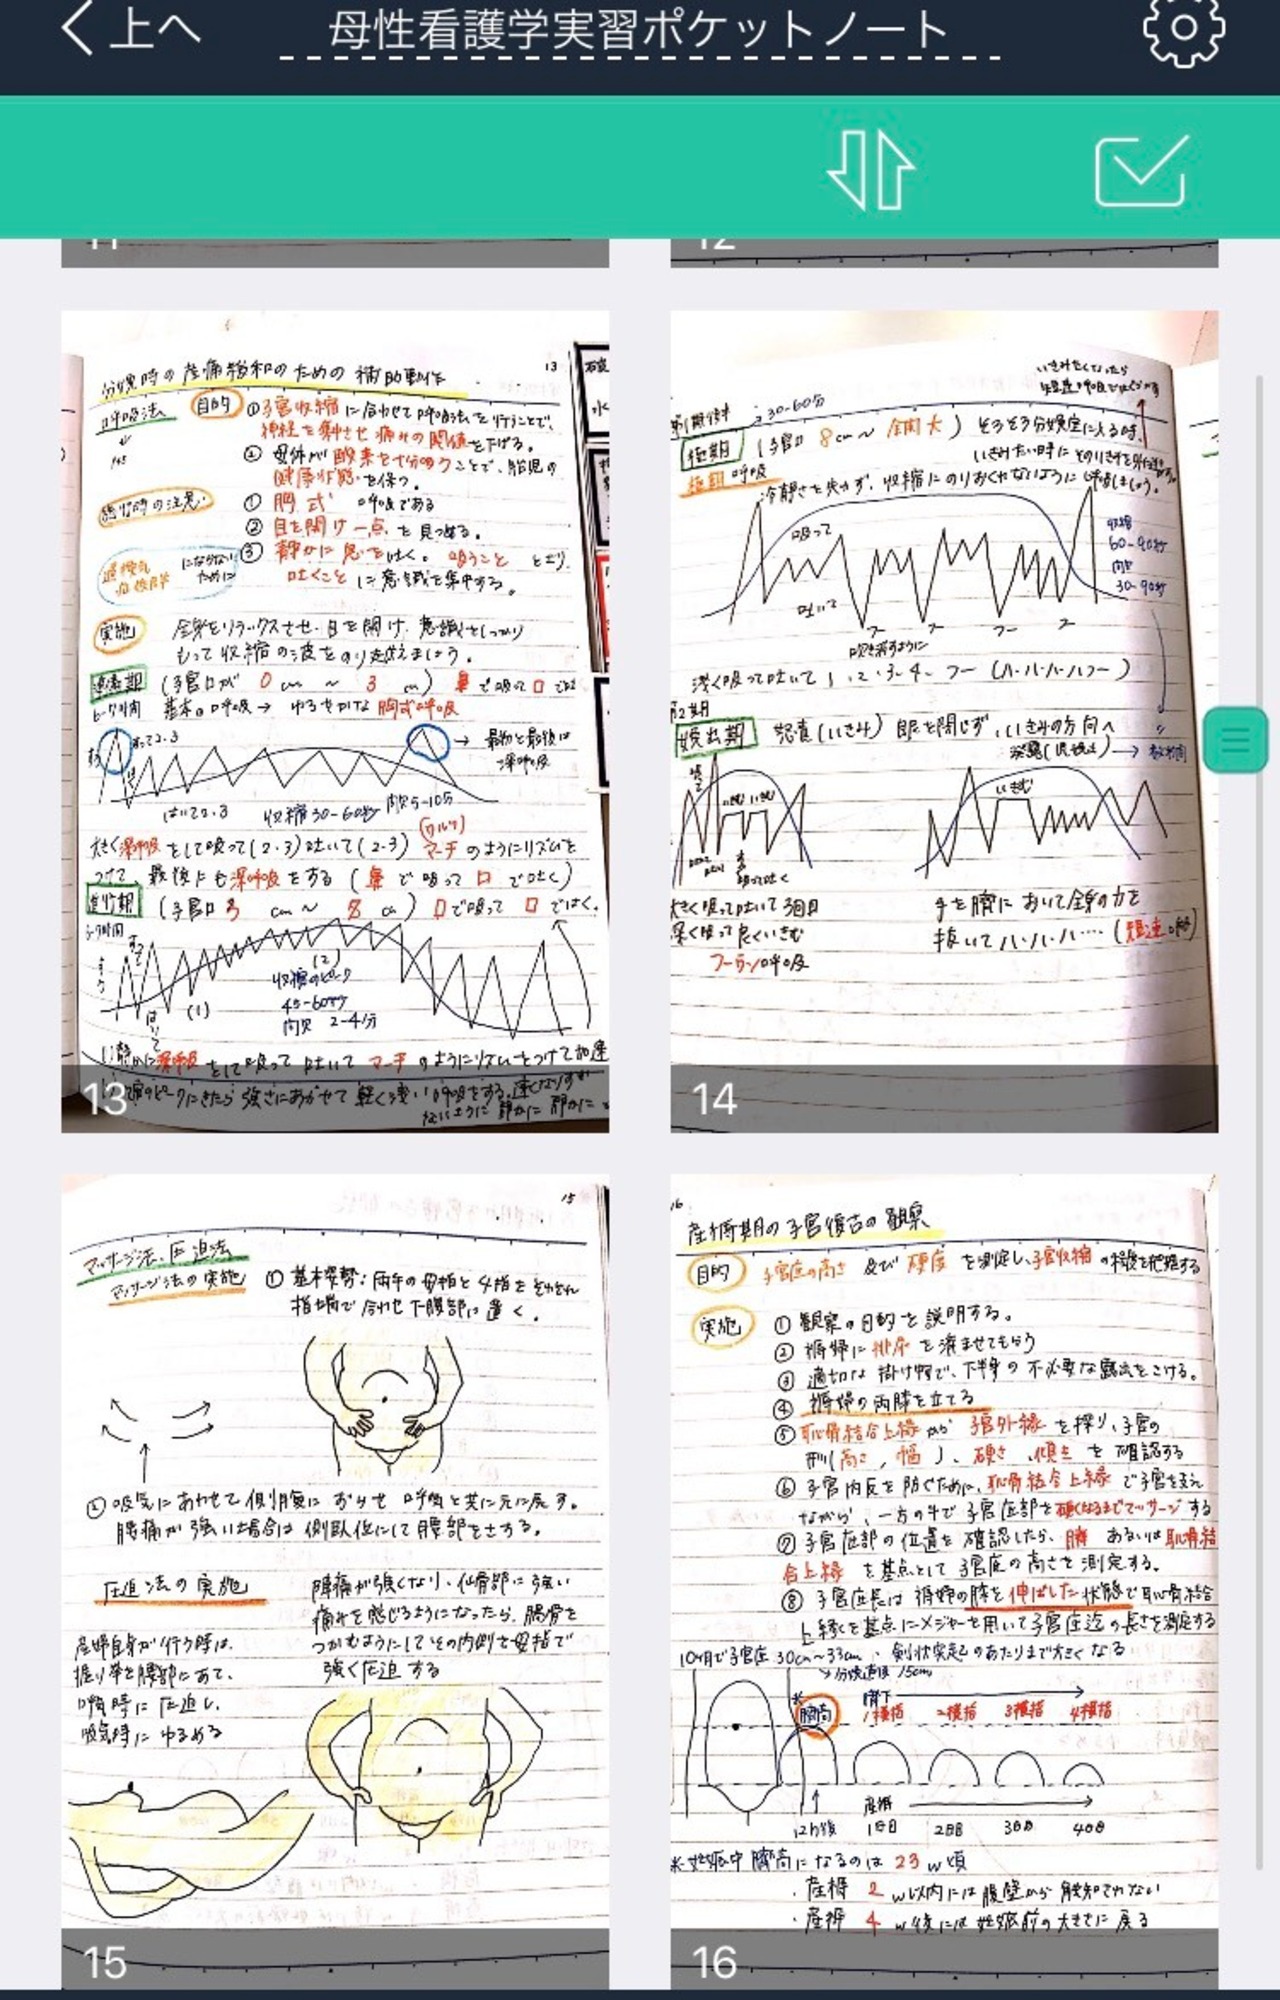 上へ
母性看護学実習ポケットノート
11
12
13
分娩時の産痛緩和のための補助動作
呼吸法
目的
①子宮収縮に合わせて呼吸法を行うことで、
神経を集中させ痛みの閾値を下げる。
②母体が酸素を十分吸うことで、胎児の
健康状態を保つ。
練習時の注意
①胸式呼吸である
②目を開け一点を見つめる。
③静かに息を吐く。吸うことより
吐くことに意識を集中する。
過換気症候群にならないために
実施
全身をリラックスさせ、目を開け、意識をしっかり
もって収縮の波をのり越えましょう。
準備期 (子宮口が 0 cm ~ 3 cm) 鼻で吸って口
基本の呼吸→ゆるやかな胸式呼吸
吸って2.3
→最初と最後は
深呼吸
はいて2.3
収縮30-60秒 間欠5-10分
大きく深呼吸をして吸って(2・3)吐いて(2・3)
マーチのようにリズムを
つけて、最後にも深呼吸をする(鼻で吸って口で吐く)
進行期 (子宮口 3 cm ~ 8 cm) 口で吸って口ではく。
(1)
(2)
収縮のピーク
45-60秒
間欠 2-4分
静かに深呼吸をして吸って吐いてマーチのようにリズムをつけて加速
ピークにきたら強さにあわせて軽く浅い呼吸をする。速くなりすぎ
ないように静かに静かに
13
いきみたくなったら
短速呼吸で
第1期後半
30-60分
極期 (子宮口 8cm~全開大) そろそろ分娩室に入る時。
極期呼吸
いきみたい時にそのいきみを
冷静さを失わず、収縮にのりおくれないように呼吸しましょう。
吸って
吐いて
収縮
60-90秒
間欠
30-90秒
フー
吹き消すように
浅く吸って吐いて 1、2・3・4・フー(ハ・ハ・ハ・ハフー)
第2期
娩出期 努責(いきみ)眼を閉じず、いきみの方向へ
いきむ いきむ
いきむ
大きく吸って吐いて3回目
深く吸って長くいきむ
フーウン呼吸
手を胸において全身の力を
抜いてハ・ハ・ハ・・・・(短速呼吸)
14
15
マッサージ法、圧迫法
マッサージ法の実施
①基本姿勢:両手の母指と4指をそれぞれ
指端で合わせ下腹部に置く。
②吸気にあわせて側腹にずらせ呼気と共に元に戻す。
腰痛が強い場合は側臥位にして腰部をさする。
圧迫法の実施
陣痛が強くなり、仙骨部に強い
痛みを感じるようになったら、腸骨を
つかむようにしてその内側を母指で
強く圧迫する
産婦自身が行う時は、
握り拳を腰部にあて、
呼気時に圧迫し、
吸気時にゆるめる
15
16
産褥期の子宮復古の観察
目的
子宮底の高さ及び硬度を測定し、子宮収縮の状態を把握する
実施
①観察の目的を説明する。
②褥婦に排尿を済ませてもらう
③適切な掛け物で、下半身の不必要な露出をさける。
④褥婦の両膝を立てる
⑤恥骨結合上縁から子宮外縁を探り、子宮の
形(高さ、幅)、硬さ、傾きを確認する
⑥子宮内反を防ぐために、恥骨結合上縁で子宮を支え
ながら、一方の手で子宮底部を硬くなるまでマッサージする
⑦子宮底部の位置を確認したら、臍あるいは恥骨結
合上縁を基点として子宮底の高さを測定する。
⑧子宮底長は褥婦の膝を伸ばした状態で恥骨結合
上縁を基点にメジャーを用いて子宮底迄の長さを測定する
10ヶ月で子宮底30cm~33cm、剣状突起のあたりまで大きくなる
分娩直後15cm
臍高
臍下
1横指 2横指 3横指 4横指
産褥
12h後 1日目 2日目 3日目 4日目
※妊娠中臍高になるのは23w頃
・産褥2w以内には腹壁から触知されない
・産褥4w後には妊娠前の大きさに戻る
16